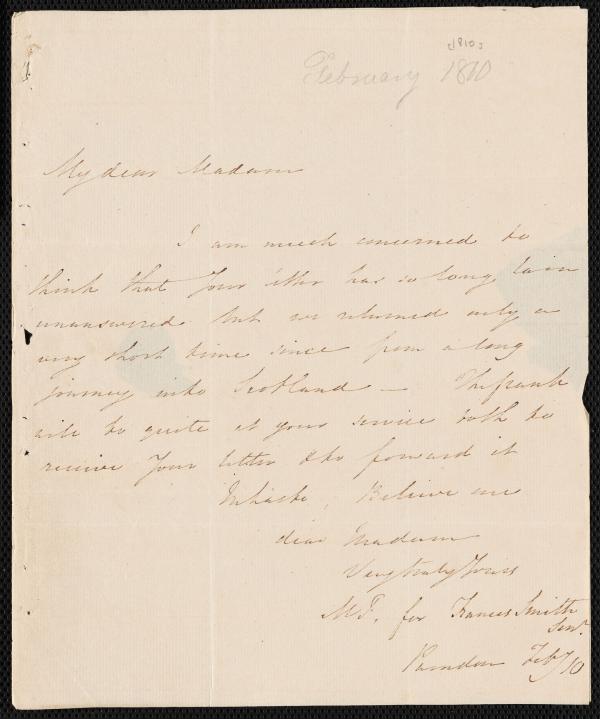 [1810]
February 1810
My dear Madam
I am much concerned to
think that your letter has so long lain
unanswered but we returned only a
very short time since from a long
journey into Scotland —
will be quite at your service both to
receive your letter & to forward it
In haste, Believe me
dear Madam
Very truly Yours
for Frances Smith
Senr.
Parndon Feby 10